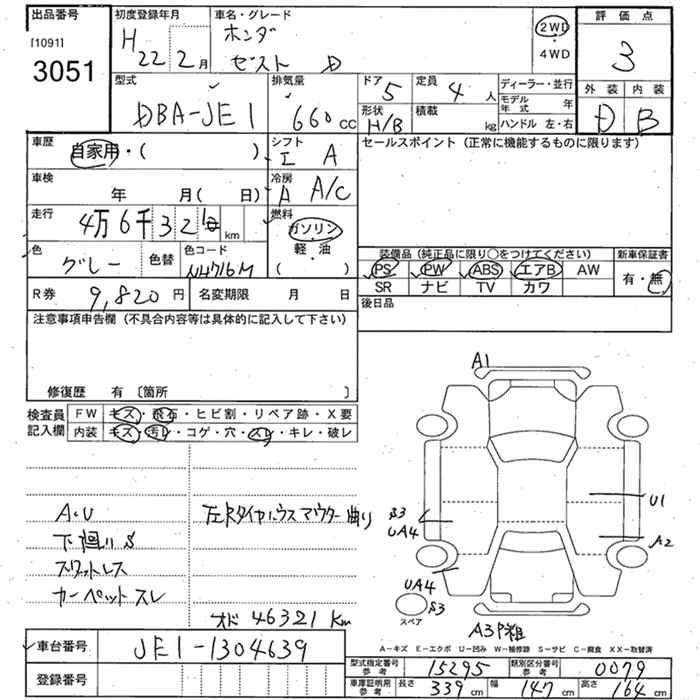 出品番号
[1091]
3051
初度登録年月
H 22 2月
車名・グレード
ホンダ
ゼスト D
2WD
・
4WD
評価点
3
外装 内装
D B
型式
DBA-JE1
排気量
660 cc
ドア 5
定員 4 人
形状 H/B
積載 kg
ディーラー・並行
モデル年式 年
ハンドル 左・右
車歴
自家用・( )
シフト
I A
セールスポイント(正常に機能するものに限ります)
車検
年 月( 日)
冷房
A A/C
走行
4万6千321 km
燃料
ガソリン
軽・油
( )
色
グレー
色替
色コード
NH716M
装備品(純正品に限り○をつけてください)
新車保証書
PS PW ABS エアB AW
SR ナビ TV カワ
有・無
R券 9,820 円
名変期限 月 日
後日品
注意事項申告欄(不具合内容等は具体的に記入して下さい)
修復歴 有 〔箇所 〕
検査員
記入欄
FW キズ・飛石・ヒビ割・リペア跡・X要
内装 キズ・汚レ・コゲ・穴・スレ・キレ・破レ
A・U
下廻りS
スワットレス
カーペットスレ
左Rタイヤハウスアウター曲り
オド 46321 km
A1
U1
A2
S3
UA4
UA4
S3
スペア
A3P粗
A－キズ E－エクボ U－凹み W－補修跡 S－サビ C－腐食 XX－取替済
車台番号
JE1-1304639
登録番号
型式指定番号
参考
15295
類別区分番号
参考
0079
車庫証明用
参考
長さ 339 cm
幅 147 cm
高さ 164 cm